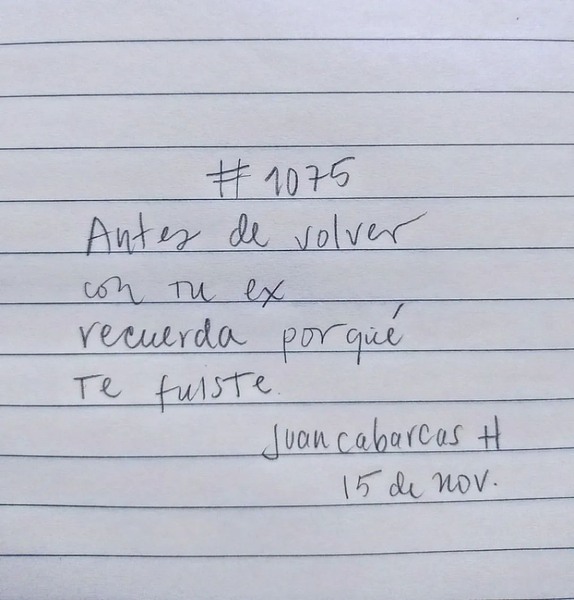 # 1075
Antes de volver
con tu ex
recuerda porqué
te fuiste.
Juan cabarcas H
15 de nov.